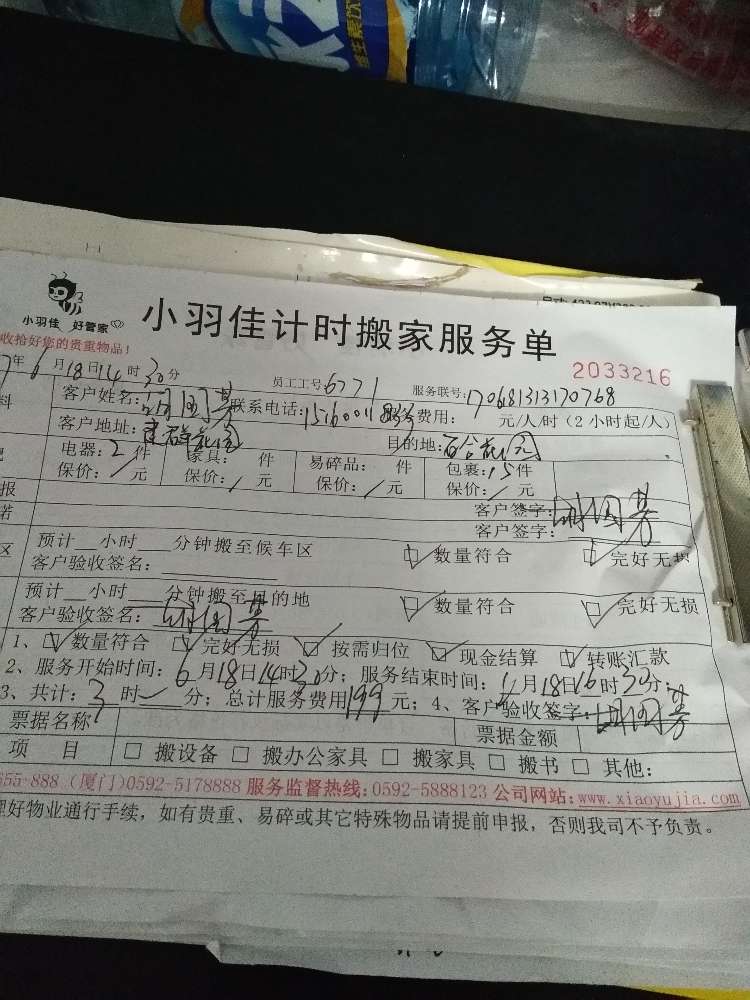 维生素饮
小羽佳 好管家
小羽佳计时搬家服务单
2033216
收拾好您的贵重物品！
7年6月18日14时30分 员工工号:6771 服务联号:170681313170768
客户姓名: 联系电话: 服务费用: 元/人/时（2小时起/人）
客户地址: 建群花园 目的地:百合花园
电器:2件 家具: 件 易碎品: 件 包裹:15件
保价:/元 保价:/元 保价:/元 保价:/元
客户签字:胡国芳
客户签字:
预计__小时___分钟搬至候车区 ☑数量符合 ☑完好无损
客户验收签名:
预计__小时___分钟搬至目的地 ☑数量符合 ☑完好无损
客户验收签名:胡国芳
1、☑数量符合 ☑完好无损 ☑按需归位 ☑现金结算 ☑转账汇款
2、服务开始时间:6月18日14时30分；服务结束时间: 月18日16时30分；
3、共计:3时 分；总计服务费用199元；4、客户验收签字:胡国芳
票据名称 票据金额
项 目 □搬设备 □搬办公家具 □搬家具 □搬书 □其他:
655-888（厦门）0592-5178888 服务监督热线:0592-5888123 公司网站:www.xiaoyujia.com
理好物业通行手续，如有贵重、易碎或其它特殊物品请提前申报，否则我司不予负责。